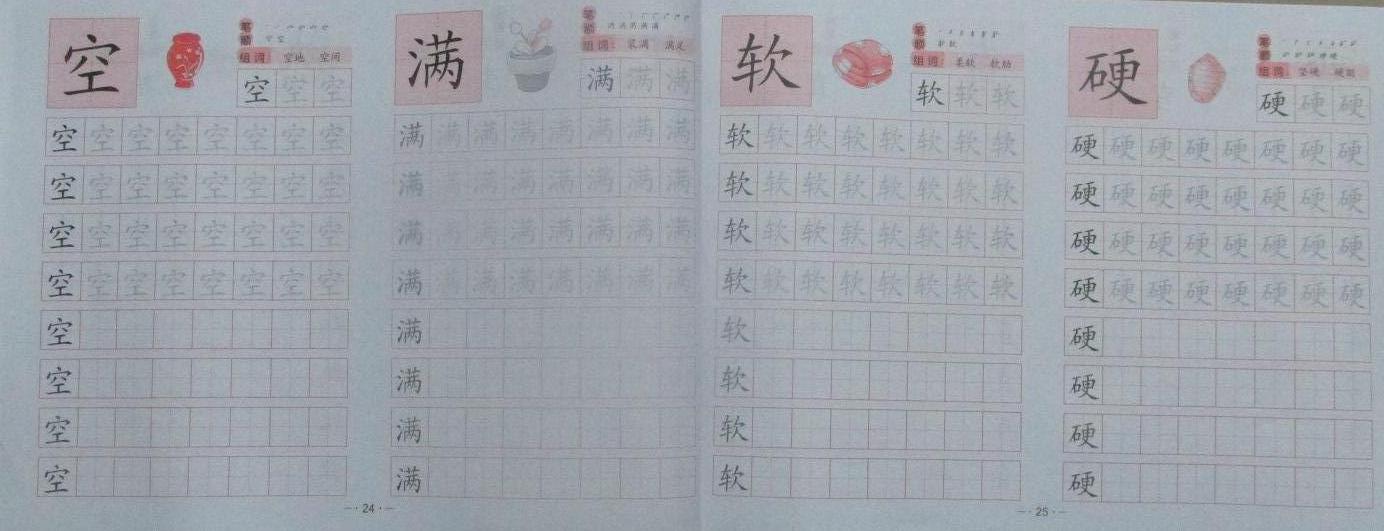 空
笔顺
空
组词 空地 空闲
空 空 空
空 空 空 空 空 空 空 空
空 空 空 空 空 空 空 空
空 空 空 空 空 空 空 空
空 空 空 空 空 空 空 空
空
空
空
空
满
笔顺
组词: 装满 满足
满 满 满
满 满 满 满 满 满 满 满
满 满 满 满 满 满 满 满
满 满 满 满 满 满 满 满
满 满 满 满 满 满 满 满
满
满
满
满
— · 24 · —
软
笔顺
组词 柔软 软肋
软 软 软
软 软 软 软 软 软 软 软
软 软 软 软 软 软 软 软
软 软 软 软 软 软 软 软
软 软 软 软 软 软 软 软
软
软
软
软
硬
笔顺
组词 坚硬
硬 硬 硬
硬 硬 硬 硬 硬 硬 硬 硬
硬 硬 硬 硬 硬 硬 硬 硬
硬 硬 硬 硬 硬 硬 硬 硬
硬 硬 硬 硬 硬 硬 硬 硬
硬
硬
硬
硬
— · 25 · —